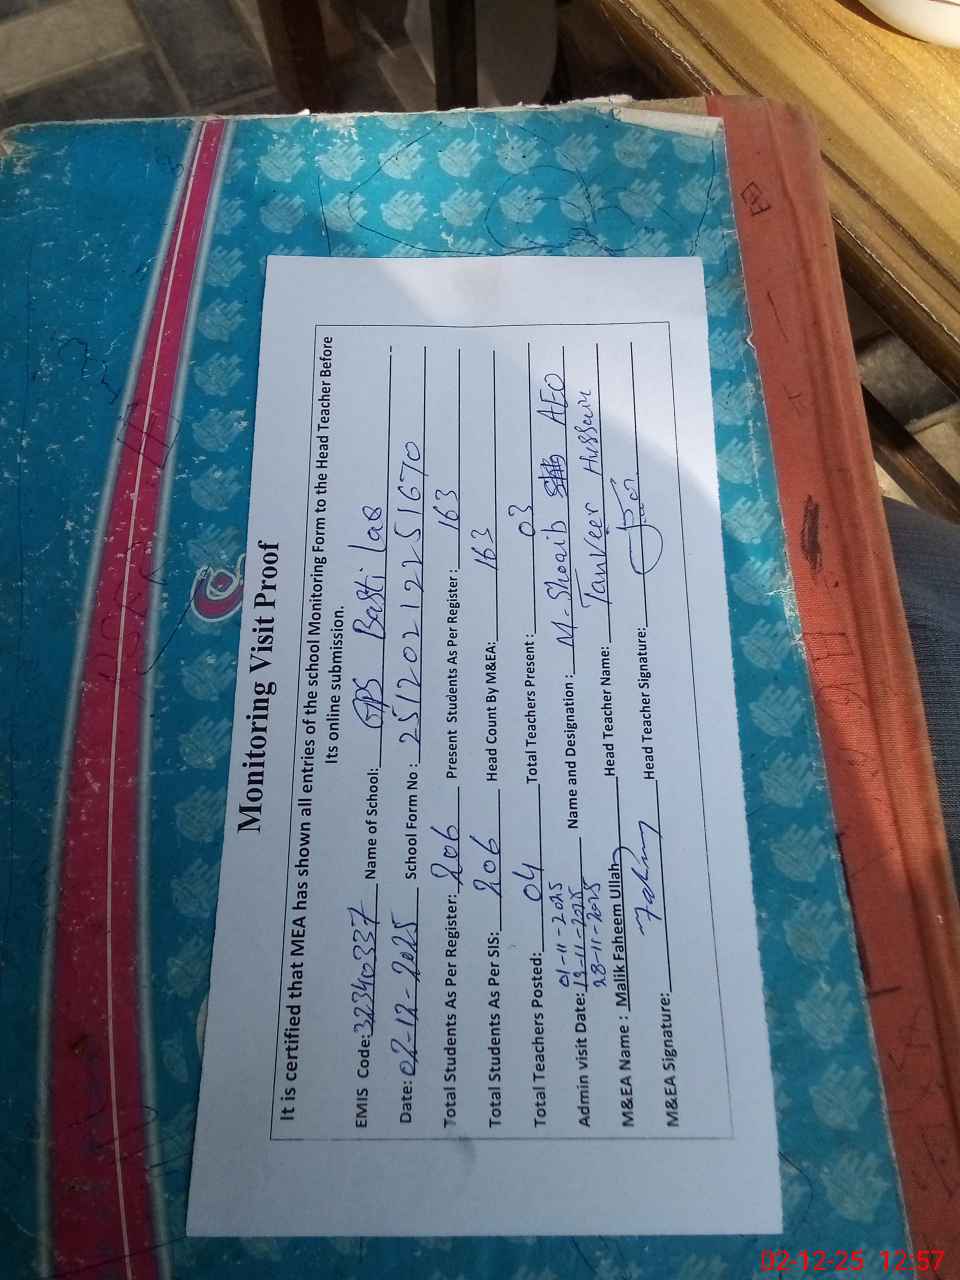 Monitoring Visit Proof
It is certified that MEA has shown all entries of the school Monitoring Form to the Head Teacher Before
Its online submission.
EMIS Code: 32340337 Name of School: GPS Basti Lab
Date: 02-12-2025 School Form No : 25120212251670
Total Students As Per Register: 206 Present Students As Per Register : 163
Total Students As Per SIS: 206 Head Count By M&EA: 163
Total Teachers Posted: 04 Total Teachers Present : 03
01-11-2025
Admin visit Date: 13-11-2025 Name and Designation : M-Shoaib AEO
28-11-2025
M&EA Name : Malik Faheem Ullah Head Teacher Name: Tanveer Hussain
M&EA Signature: Fahim Head Teacher Signature:
02-12-25 12:57